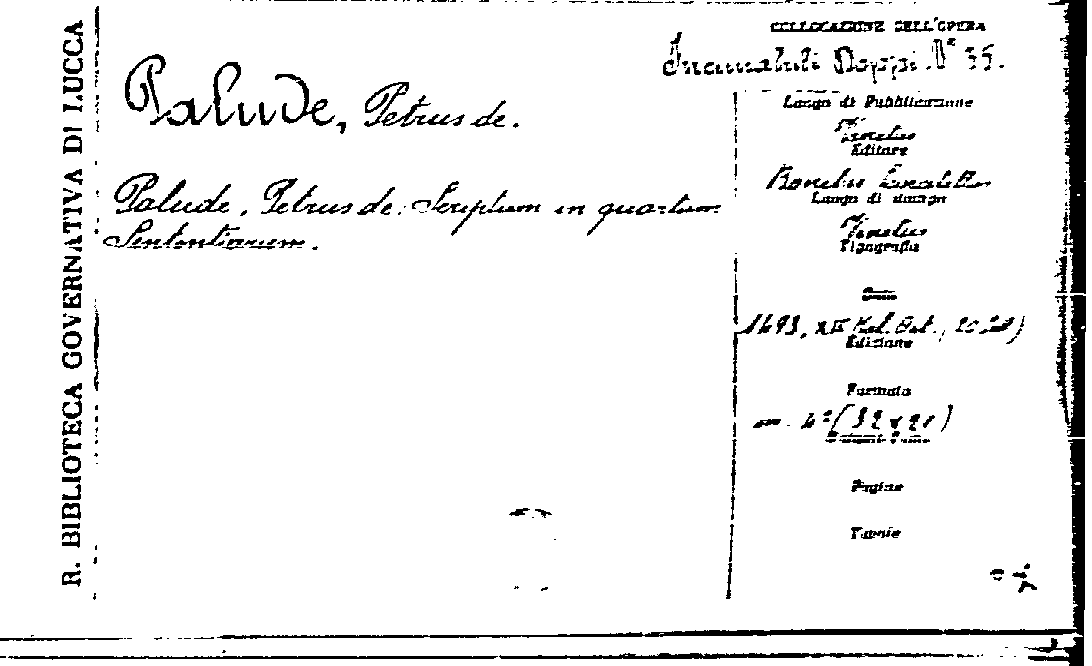 R. BIBLIOTECA GOVERNATIVA DI LUCCA
Palude, Petrus de.
Palude, Petrus de: Scriptum in quartum
Sententiarum.
COLLOCAZIONE DELL'OPERA
Incunabuli Doppi. N° 35.
Luogo di Pubblicazione
Venetiis
Editore
Bonetus Locatellus
Luogo di stampa
Venetiis
Tipografia
Data
1493, XII Kal. Oct.,
Edizione
Formato
4° (32 x 21)
Pagine
Tavole